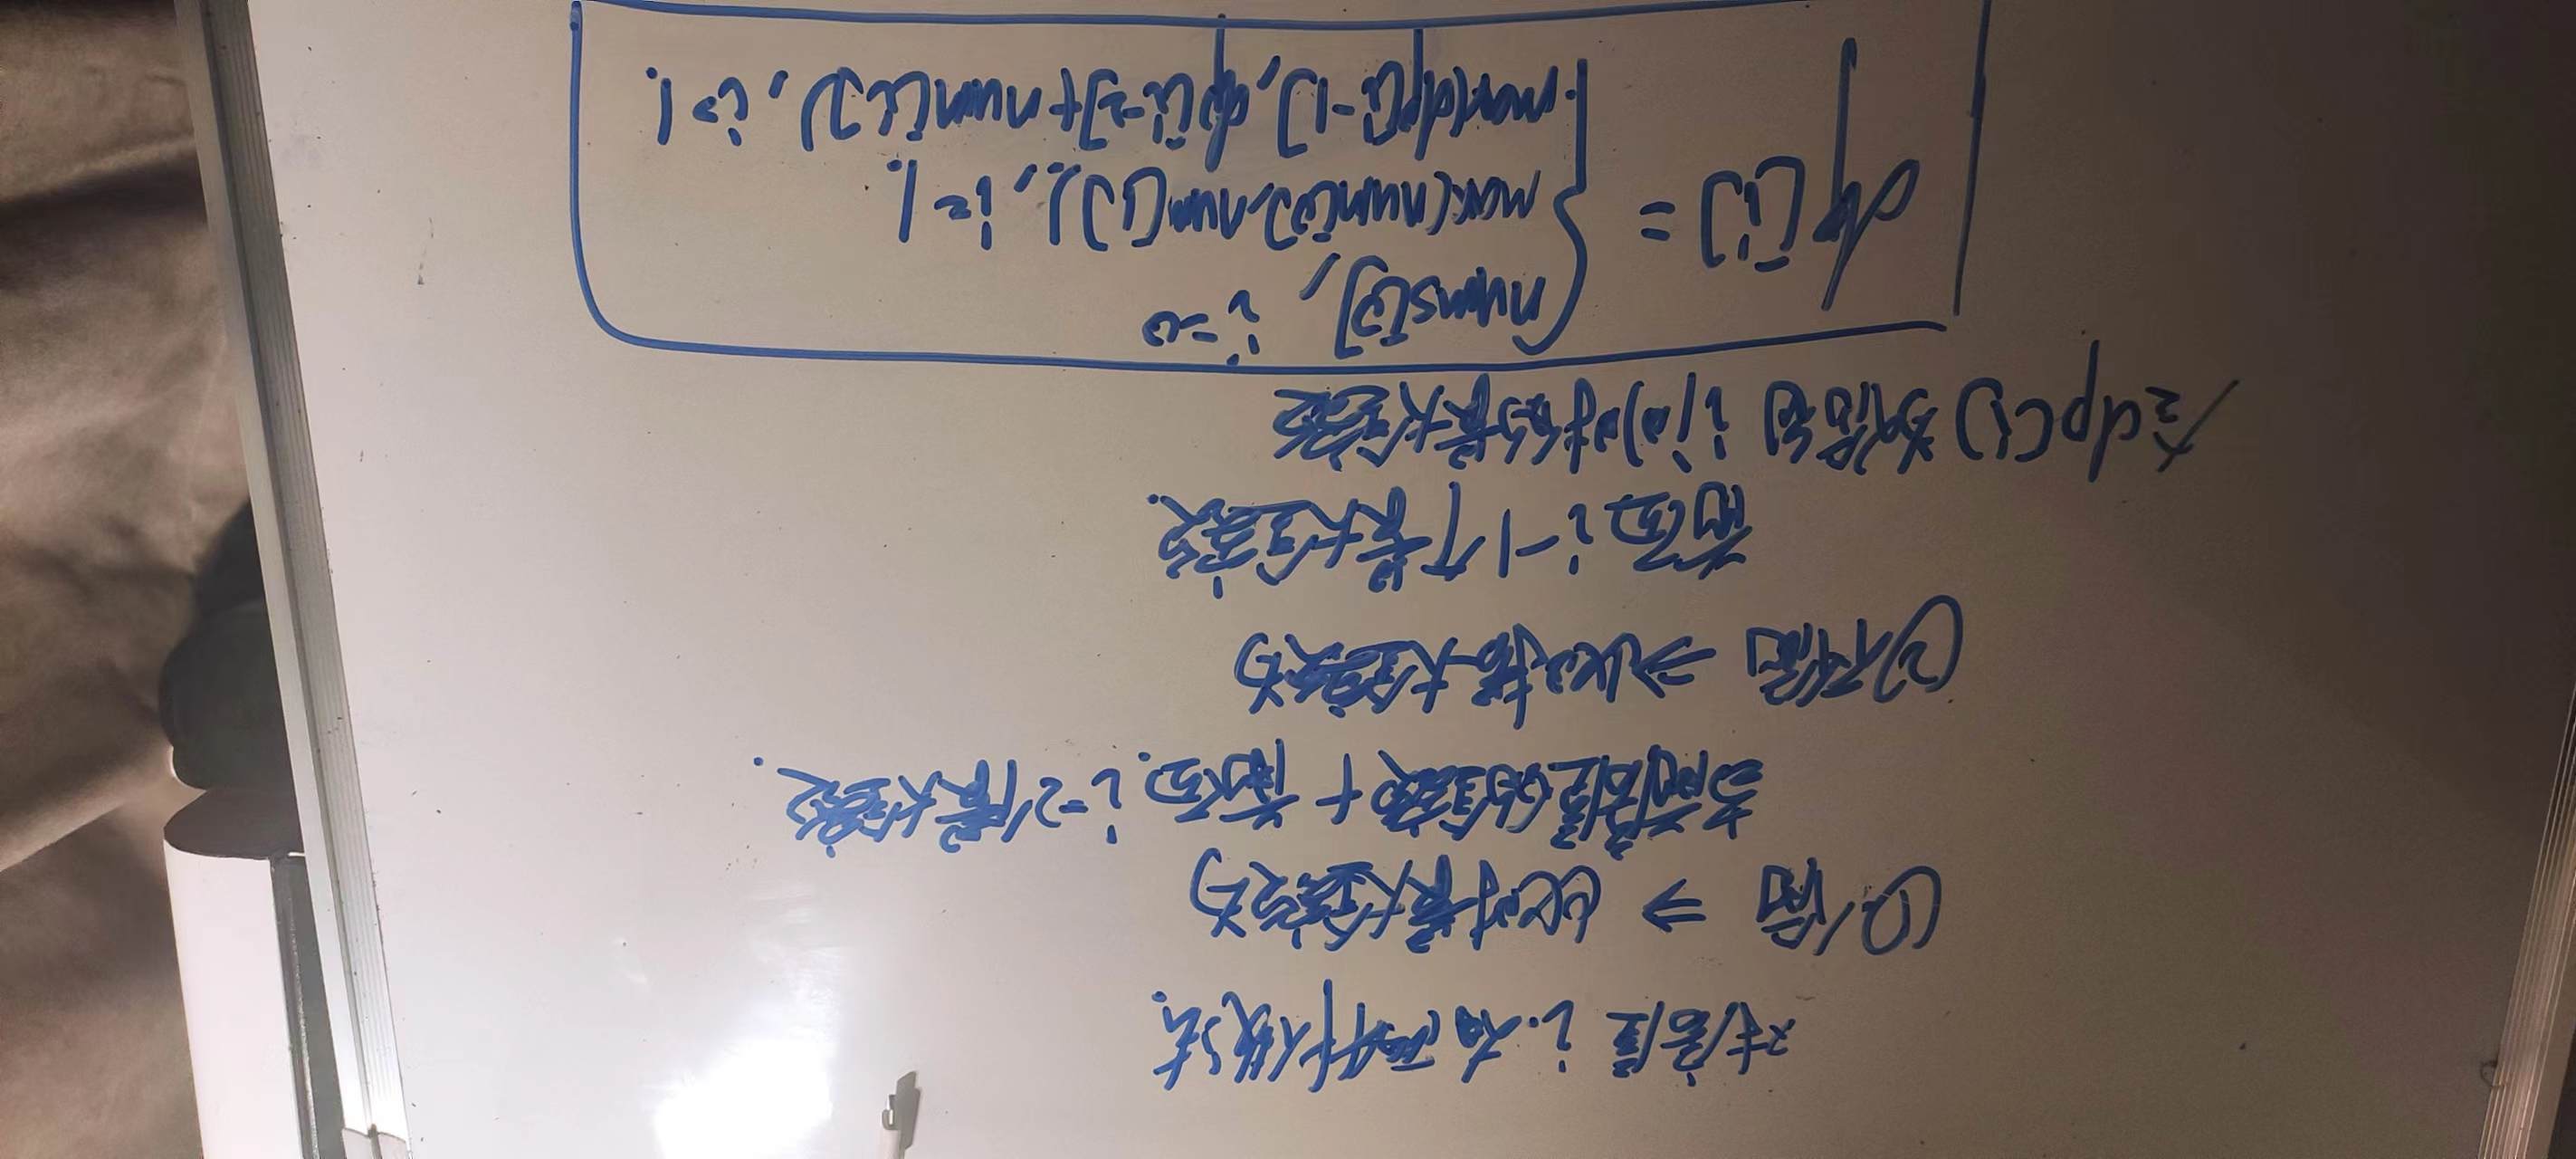 对房屋 i.有两种做法.
①.偷 ⇒ 此时最大金额为
当前房屋的金额 + 前面.i-2个最大金额.
②不偷 ⇒此时最大金额为
前面 i-1个最大金额.
令dp[i]为偷到 i间时的最大金额
dp[i] = { nums[0], i=0
max(num[0],num[1])., i=1.
max(dp[i-1],dp[i-2]+num[i]), i>1.